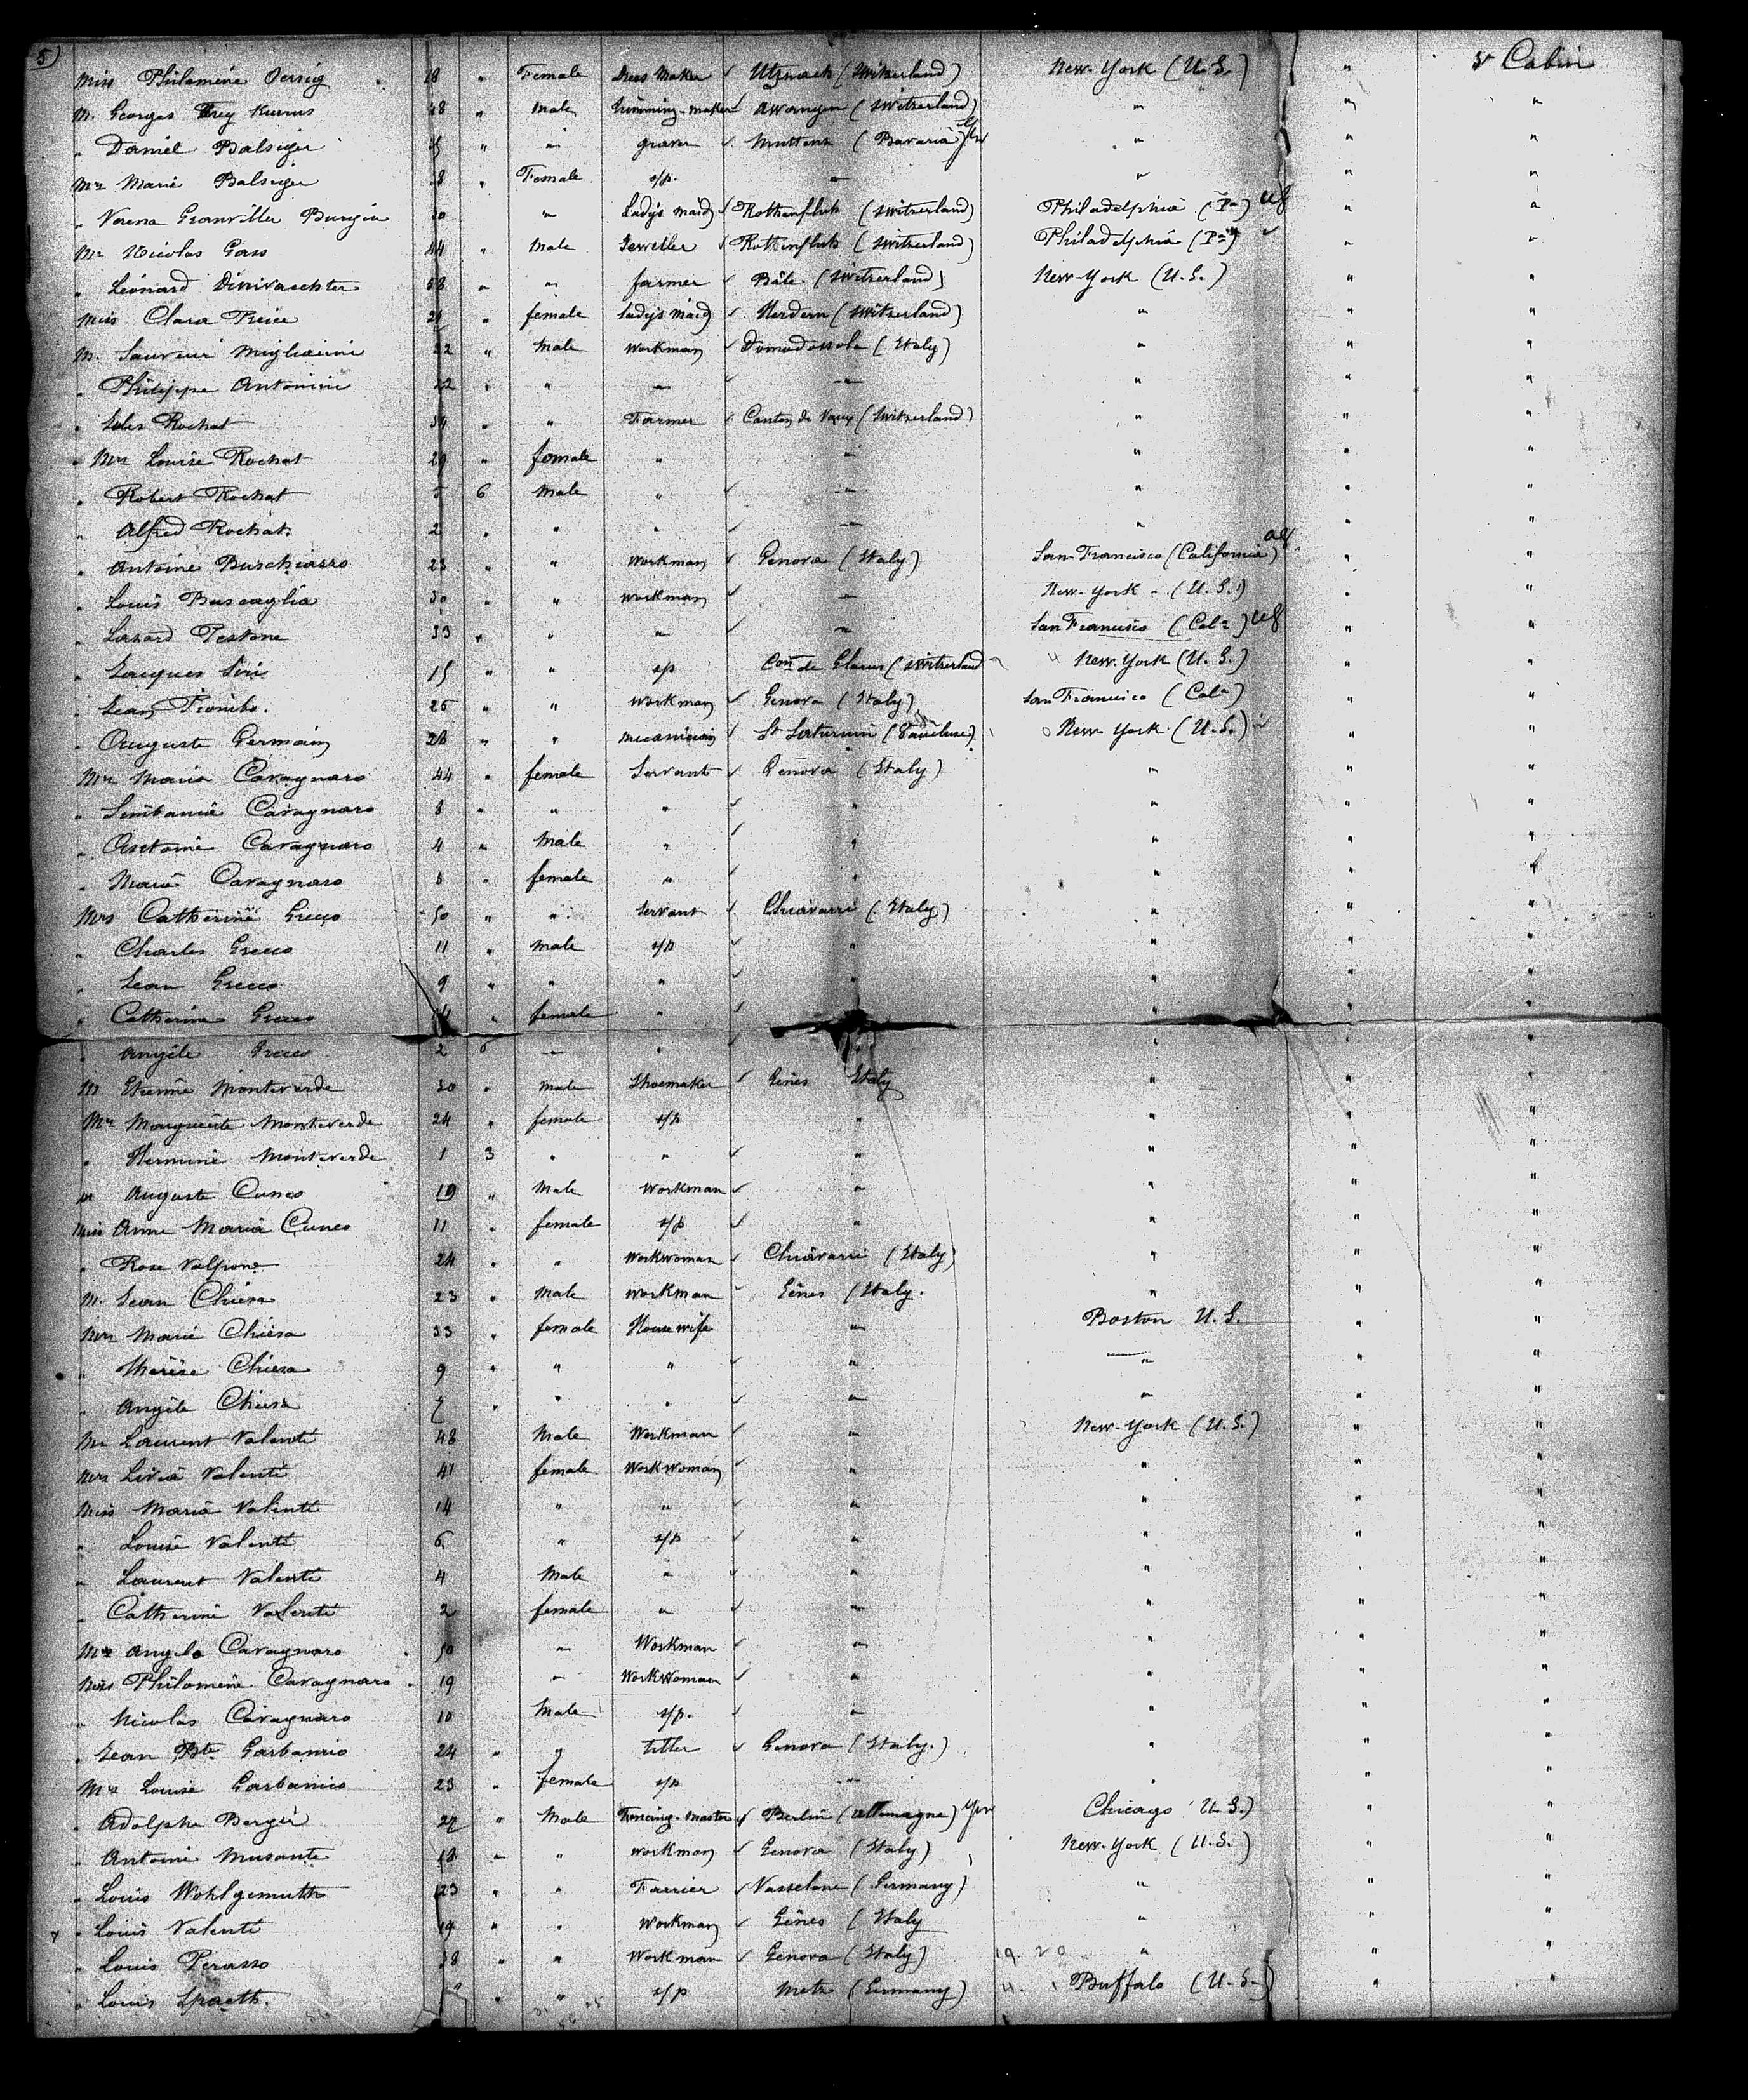 5)
Miss Philomène 18 " Female Dress Maker ✓ Utznach (Switzerland) New-York (U.S.) " 2r Cabin
M. Georges Frey Kurrus 48 " male trimming-maker ✓ (Switzerland) " " "
" Daniel Balsiger " " graver ✓ Muttenz (Bavaria) " " "
Mrs Marie Balsiger 28 " Female s/p. " " " "
" Verena Granviller Burgin 30 " Lady's maid ✓ Rothenfluh (Switzerland) Philadelphia (Pa) " "
Mr Nicolas Gass 44 " male Jeweller ✓ Rothenfluh (Switzerland) Philadelphia (Pa) " "
" Léonard 58 " " farmer ✓ Bâle (Switzerland) New-York (U.S.) " "
Miss Clara " female Lady's maid ✓ Herdern (Switzerland) " " "
M. Sauveur Migliarini 22 " male workman ✓ Domodossola (Italy) " " "
" Philippe Antonini 22 " " " ✓ " " " "
" Jules Rochat 34 " " Farmer ✓ Canton de Vaux (Switzerland) " " "
" Mrs Louise Rochat 29 " female " " " " "
" Robert Rochat 5 6 male " ✓ " " " "
" Alfred Rochat. 2 " " " ✓ " " " "
" Antoine Buschiazzo 23 " " workman ✓ Genova (Italy) San-Francisco (California) " "
" Louis Buscaglia 30 " " workman ✓ " New-York - (U.S.) " "
" Lazard Pestone 33 " " " ✓ " San Francisco (Cala) " "
" Jacques 15 " " s/p Con de Glarus (Switzerland New-York (U.S.) " "
" Jean Piombo. 25 " " workman ✓ Genova (Italy) San Francisco (Cala) " "
" Auguste Germain 28 " " mecanician ✓ St Saturnin (Vaucluse) New-York (U.S.) " "
Mrs Maria Cavagnaro 44 " female Servant ✓ Genova (Italy) " " "
" Cavagnaro 8 " " " ✓ " " " "
" Antoine Cavagnaro 4 " male " ✓ " " " "
" Marie Cavagnaro 8 " female " ✓ " " " "
Mrs Catherine Greco 50 " " servant ✓ Chiavarri (Italy) " " "
" Charles Greco 11 " male s/p ✓ " " " "
" Jean Greco 9 " " " ✓ " " " "
" Catherine Greco " female " ✓ " " "
" Angèle Greco 2 6 " " ✓ " " "
M Etienne Monteverde 30 " male Shoemaker ✓ Gênes Italy " " "
Mrs Marguerite Monteverde 24 " female s/p " " " "
" Herminie Monteverde 1 3 " " ✓ " " " "
M Auguste Cuneo 19 " male workman ✓ " " " "
Miss Anne Maria Cuneo 11 " female s/p ✓ " " " "
" Rose Valpone 24 " " workwoman ✓ Chiavarri (Italy) " " "
M. Jean Chiesa 23 " male workman ✓ Gênes (Italy. " " "
Mrs Marie Chiesa 33 " female House wife " Boston U.S. " "
" Thérèse Chiesa 9 " " " ✓ " " " "
" Angèle Chiesa 7 " " " ✓ " " " "
Mr Laurent Valenti 48 male Workman ✓ " New-York (U.S.) " "
Mrs Livia Valenti 41 female Workwoman ✓ " " " "
Miss Maria Valenti 14 " " ✓ " " " "
" Louise Valenti 6 " s/p ✓ " " " "
" Laurent Valenti 4 male " ✓ " " " "
" Catherine Valenti 2 female " ✓ " " " "
Mrs Angela Cavagnaro 50 " Workman ✓ " " " "
Miss Philomène Cavagnaro 19 " Workwoman ✓ " " " "
" Nicolas Cavagnaro 10 male s/p. ✓ " " " "
" Jean Bte Garbarino 24 " " tiller ✓ Genova (Italy.) " " "
Mrs Louise Garbarino 23 " female s/p " " " "
" Adolphe Berger " male Fencing-master ✓ Berlin (allemagne) Chicago U.S.) " "
" Antoine Musante 18 " " workman ✓ Genova (Italy) New-York (U.S.) " "
" Louis Wohlgemuth 23 " " Farrier ✓ Vasselone (Germany) " " "
" Louis Valenti 19 " " workman ✓ Gênes (Italy " " "
" Louis Perasso 38 " " workman ✓ Genova (Italy) " " "
" Louis Spaeth. " " s/p Metz (Germany) Buffalo (U.S.) " "